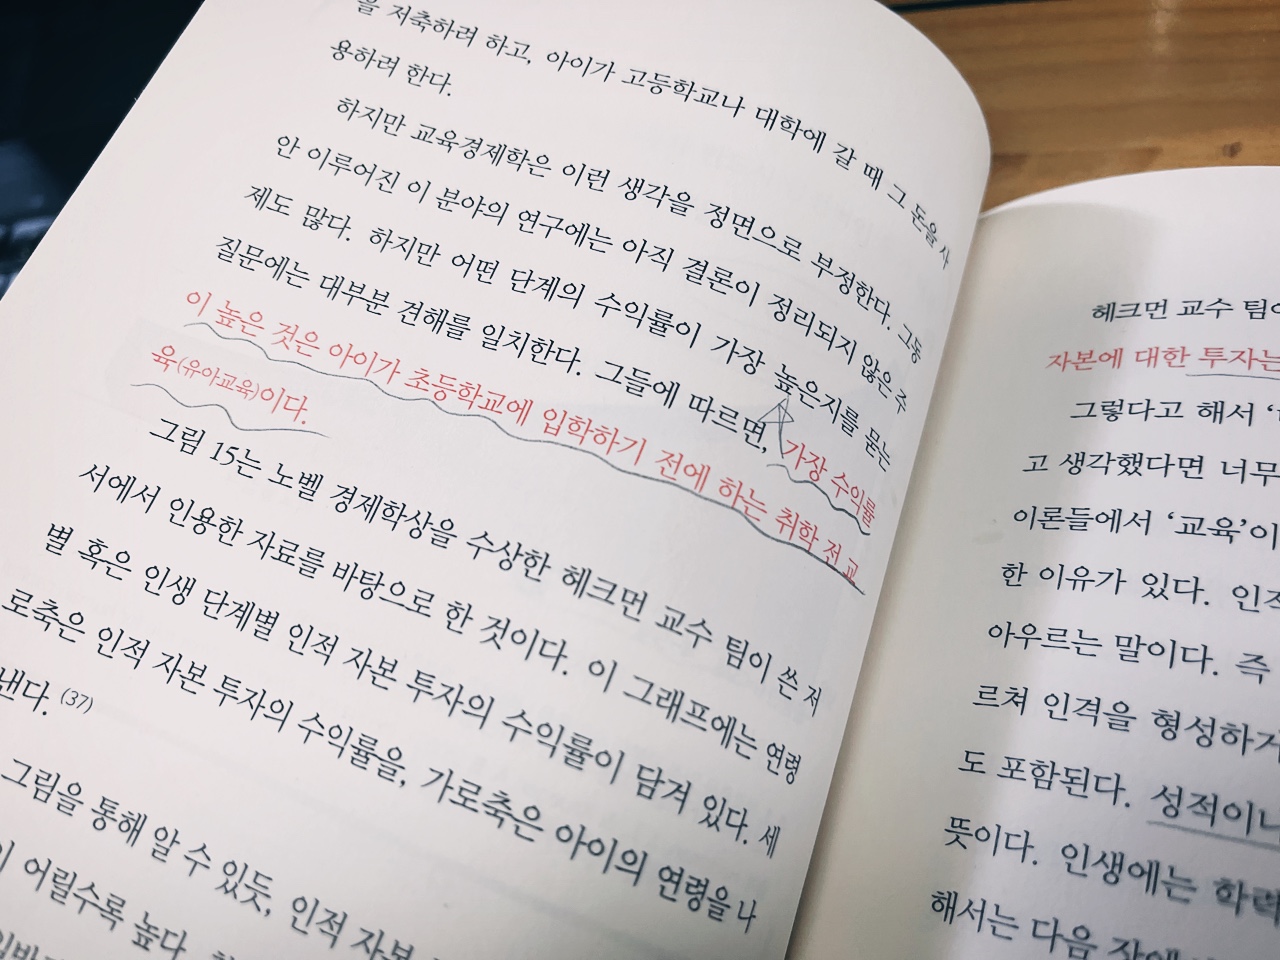 을 저축하려 하고, 아이가 고등학교나 대학에 갈 때 그 돈을 사
용하려 한다.
하지만 교육경제학은 이런 생각을 정면으로 부정한다. 그동
안 이루어진 이 분야의 연구에는 아직 결론이 정리되지 않은 주
제도 많다. 하지만 어떤 단계의 수익률이 가장 높은지를 묻는
질문에는 대부분 견해를 일치한다. 그들에 따르면, 가장 수익률
이 높은 것은 아이가 초등학교에 입학하기 전에 하는 취학 전 교
육(유아교육)이다.
그림 15는 노벨 경제학상을 수상한 헤크먼 교수 팀이 쓴 저
서에서 인용한 자료를 바탕으로 한 것이다. 이 그래프에는 연령
별 혹은 인생 단계별 인적 자본 투자의 수익률이 담겨 있다. 세
로축은 인적 자본 투자의 수익률을, 가로축은 아이의 연령을 나
낸다. (37)
그림을 통해 알 수 있듯, 인적 자본
어릴수록 높다.
헤크먼 교수 팀이
자본에 대한 투자는
그렇다고 해서
고 생각했다면 너무
이론들에서 ‘교육’이
한 이유가 있다. 인적
아우르는 말이다. 즉
르쳐 인격을 형성하거
도 포함된다. 성적이나
뜻이다. 인생에는 학력
해서는 다음 장에